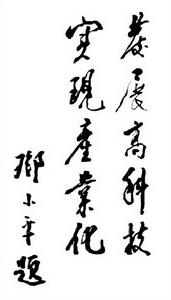 發展高科技
實現產業化
鄧小平題